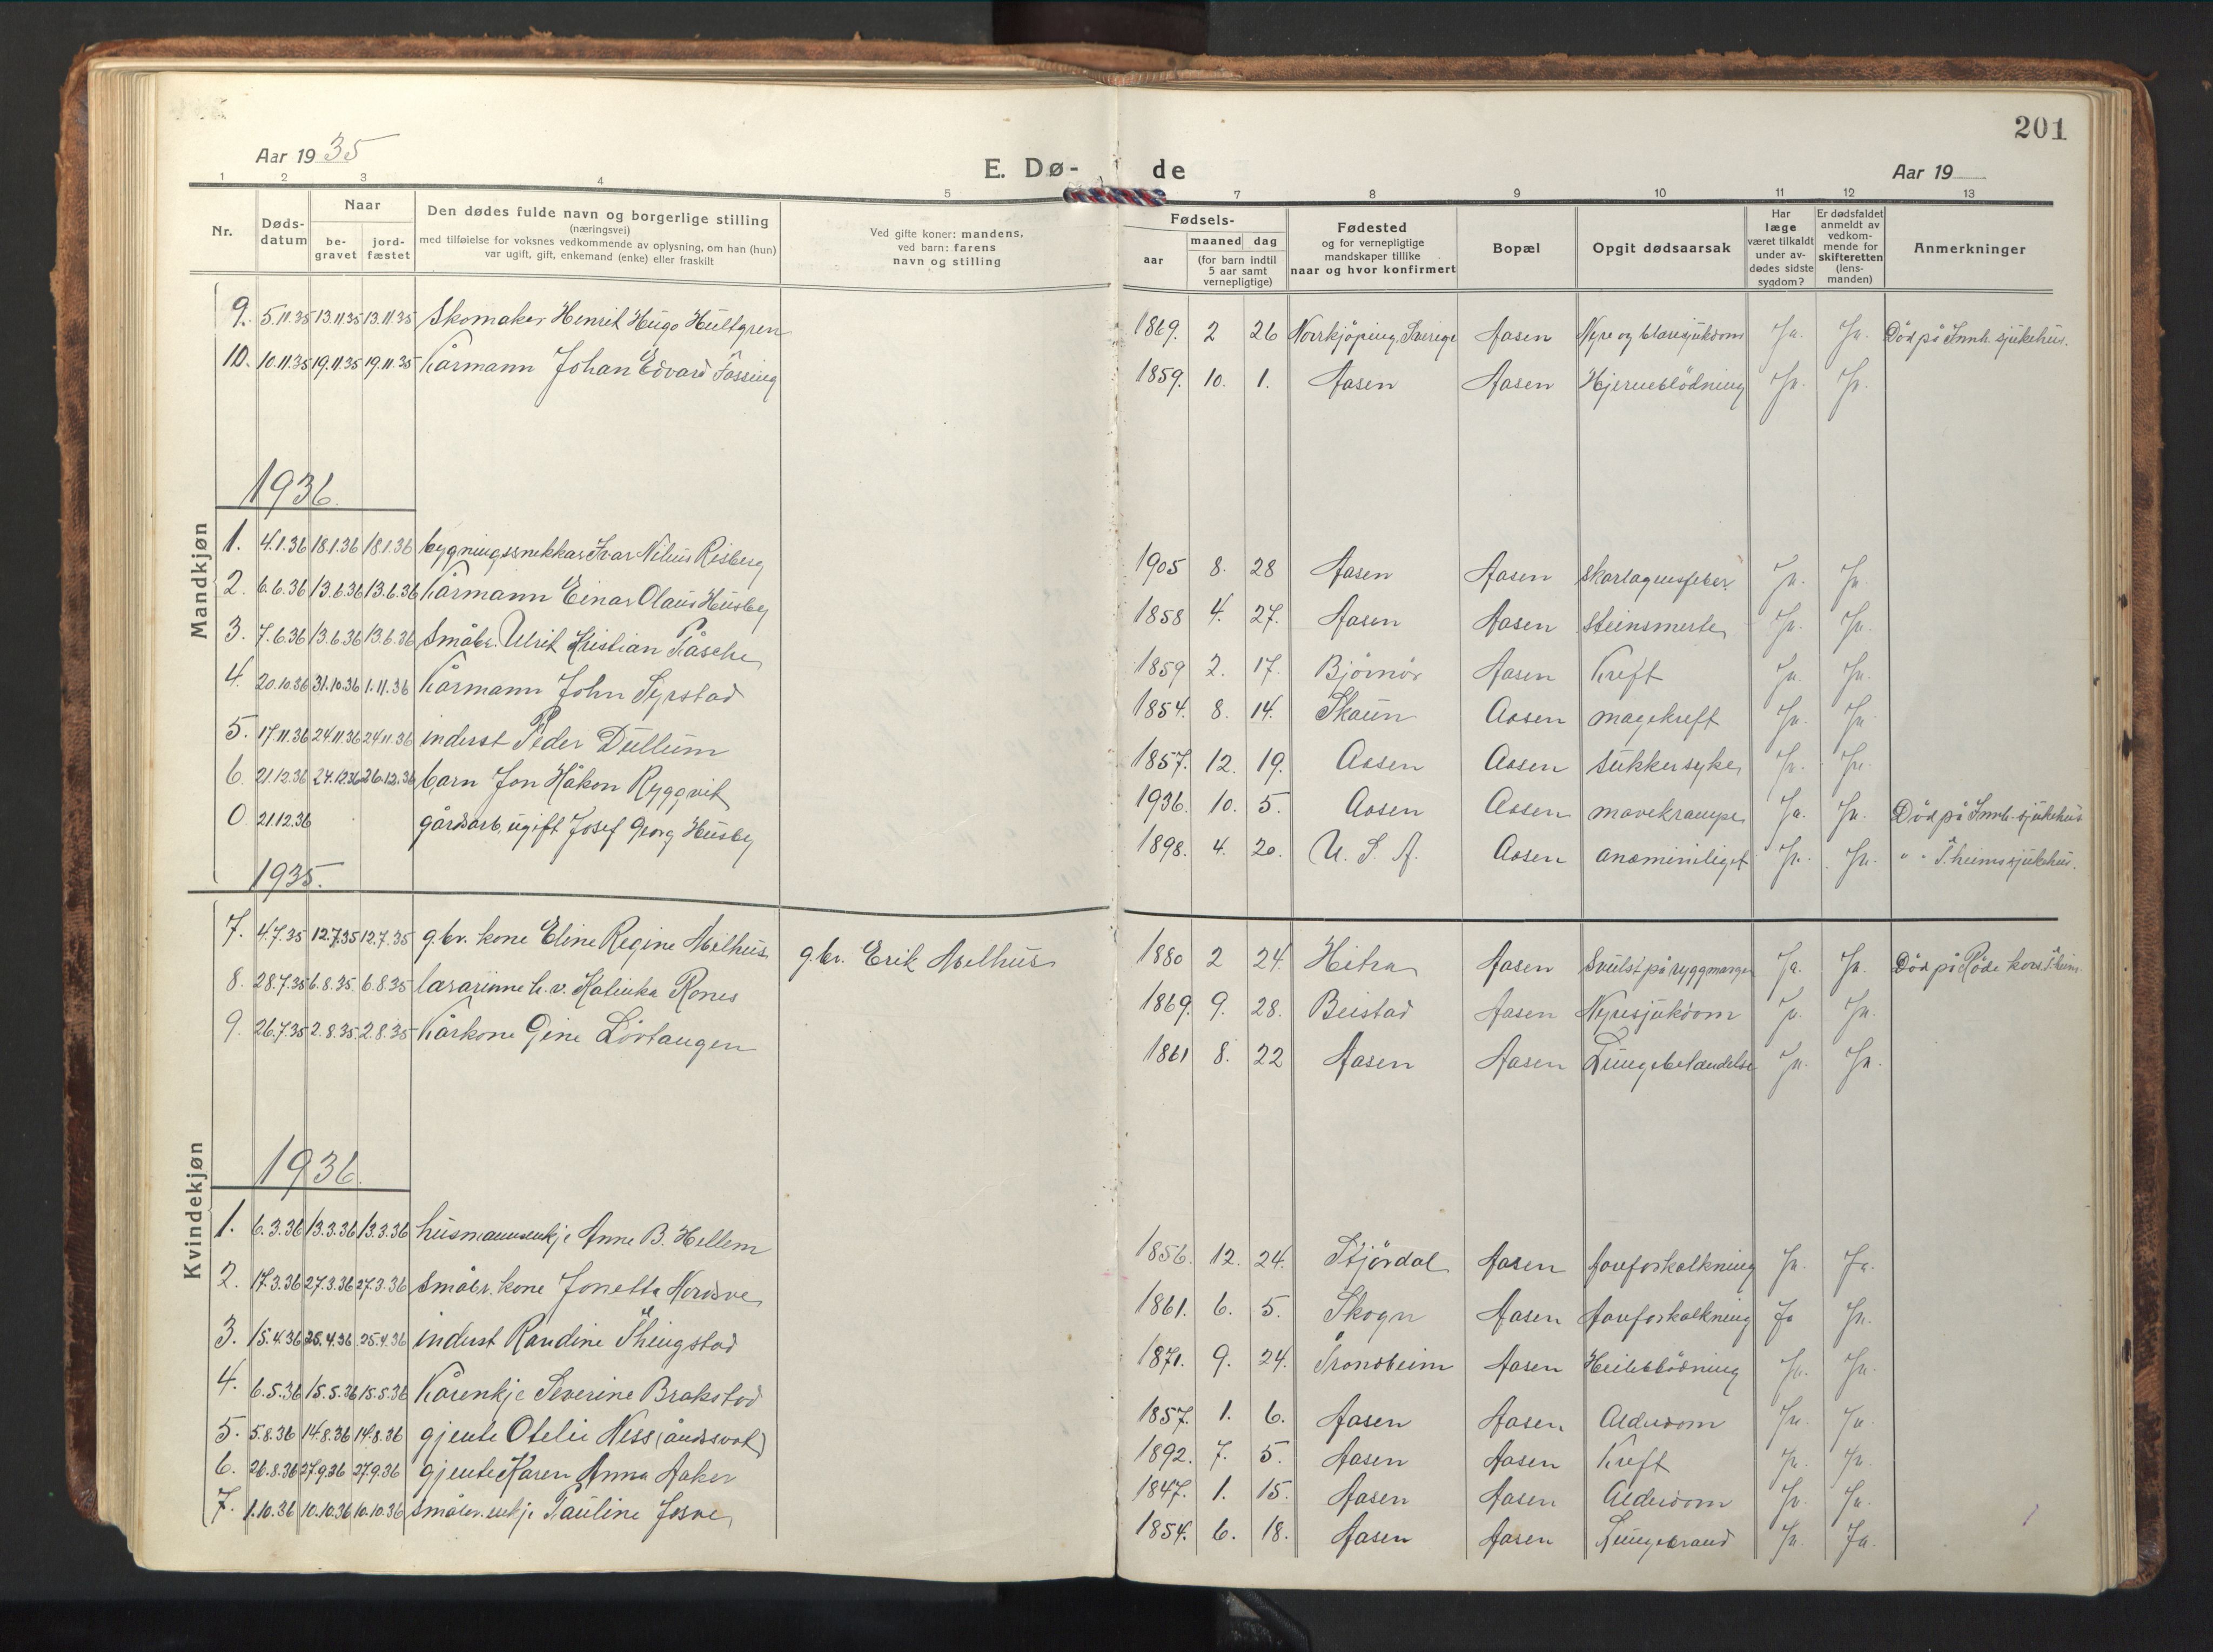 201
Aar 1935
E. Dø-
de
Aar 19
1 2 3 4 5 7 8 9 10 11 12 13
Nr.
Døds-
datum
Naar
be-
gravet
jord-
fæstet
Den dødes fulde navn og borgerlige stilling
(næringsvei)
med tilføielse for voksnes vedkommende av oplysning, om han (hun)
var ugift, gift, enkemand (enke) eller fraskilt
Ved gifte koner: mandens,
ved barn: farens
navn og stilling
Fødsels-
aar
maaned dag
(for barn indtil
5 aar samt
vernepligtige)
Fødested
og for vernepligtige
mandskaper tillike
naar og hvor konfirmert
Bopæl
Opgit dødsaarsak
Har
læge
været tilkaldt
under av-
dødes sidste
sygdom?
Er dødsfaldet
anmeldt av
vedkom-
mende for
skifteretten
(lens-
manden)
Anmerkninger
Mandkjøn
9. 5.11.35 13.11.35 13.11.35 Skomaker Henrik Hugo Hultgren 1869. 2 26 Norrkjöping, Sverige Aasen Nyre og blæresjukdom Ja. Ja. Död på Innh. sjukehus.
10. 10.11.35 19.11.35 19.11.35 Kårmann Johan Edvard Fossing 1859. 10. 1. Aasen Aasen Hjerneblödning Ja. Ja.
1936.
1. 4.1.36 18.1.36 18.1.36 bygningssnekkar Ivar Nilius Risberg 1905 8. 28 Aasen Aasen skarlagensfeber Ja. Ja.
2. 6.6.36 13.6.36 13.6.36 Kårmann Einar Olaus Husby 1858 4. 27. Aasen Aasen steinsmerter Ja. Ja.
3. 7.6.36 13.6.36 13.6.36 Småbr. Ulrik Kristian Påsche 1859 2. 17. Björnör Aasen Kreft Ja. Ja.
4. 20.10.36 31.10.36 1.11.36 Kårmann John Syrstad 1854. 8. 14. Skaun Aasen magekreft Ja. Ja
5. 17.11.36 24.11.36 24.11.36 inderst Peder Dullum 1857. 12. 19. Aasen Aasen sukkersyke Ja. Ja.
6. 21.12.36 24.12.36 26.12.36 barn Jon Håkon Ryggvik 1936. 10. 5. Aasen Aasen mavekrampe Ja. Ja. Död på Innh. sjukehus
0 21.12.36 gårdsarb. ugift Josef Georg Husby 1898. 4. 20. U. S. A. Aasen Ja. Ja. " " T.heims sjukehus.
1935.
Kvindekjøn
7. 4.7.35 12.7.35 12.7.35 g.br. kone Eline Regine Melhus g.br. Erik Melhus 1880 2 24. Hitra Aasen Svulst på ryggmargen Ja. Ja. Död på Röde kors T.heim.
8. 28.7.35 6.8.35. 6.8.35 lærarinne h.v. Kalinka Rones 1869. 9. 28. Beistad Aasen Nyresjukdom Ja. Ja.
9. 26.7.35 2.8.35. 2.8.35 Kårkone Gine Lövtangen 1861 8. 22 Aasen Aasen Lungebetændelse Ja. Ja.
1936.
1. 6.3.36 13.3.36 13.3.36 husmannsenkje Anne B. Hellem 1856. 12. 24. Stjördal Aasen Aareforkalkning Ja. Ja.
2. 17.3.36 27.3.36 27.3.36 Småbr. kone Jonetta Nordsve 1861. 6. 5. Skogn Aasen Aareforkalkning Ja Ja.
3. 15.4.36 25.4.36 25.4.36 inderst Randine Thingstad 1871. 9. 24. Trondheim Aasen Ja. Ja.
4. 6.5.36 15.5.36 15.5.36 Kårenkje Severine Brakstad 1857. 1. 6. Aasen Aasen Alderdom Ja. Ja
5. 5.8.36 14.8.36 14.8.36 gjente Otelie Ness (åndssvak) 1892. 7. 5. Aasen Aasen Kreft Ja. Ja.
6. 26.8.36 27.9.36 27.9.36 gjente Karen Anna Aaker 1847. 1. 15. Aasen Aasen Alderdom Ja. Ja.
7. 1.10.36 10.10.36 10.10.36 Småbr. enkje Pauline Josve 1854. 6. 18. Aasen Aasen Lungebrand Ja. Ja.